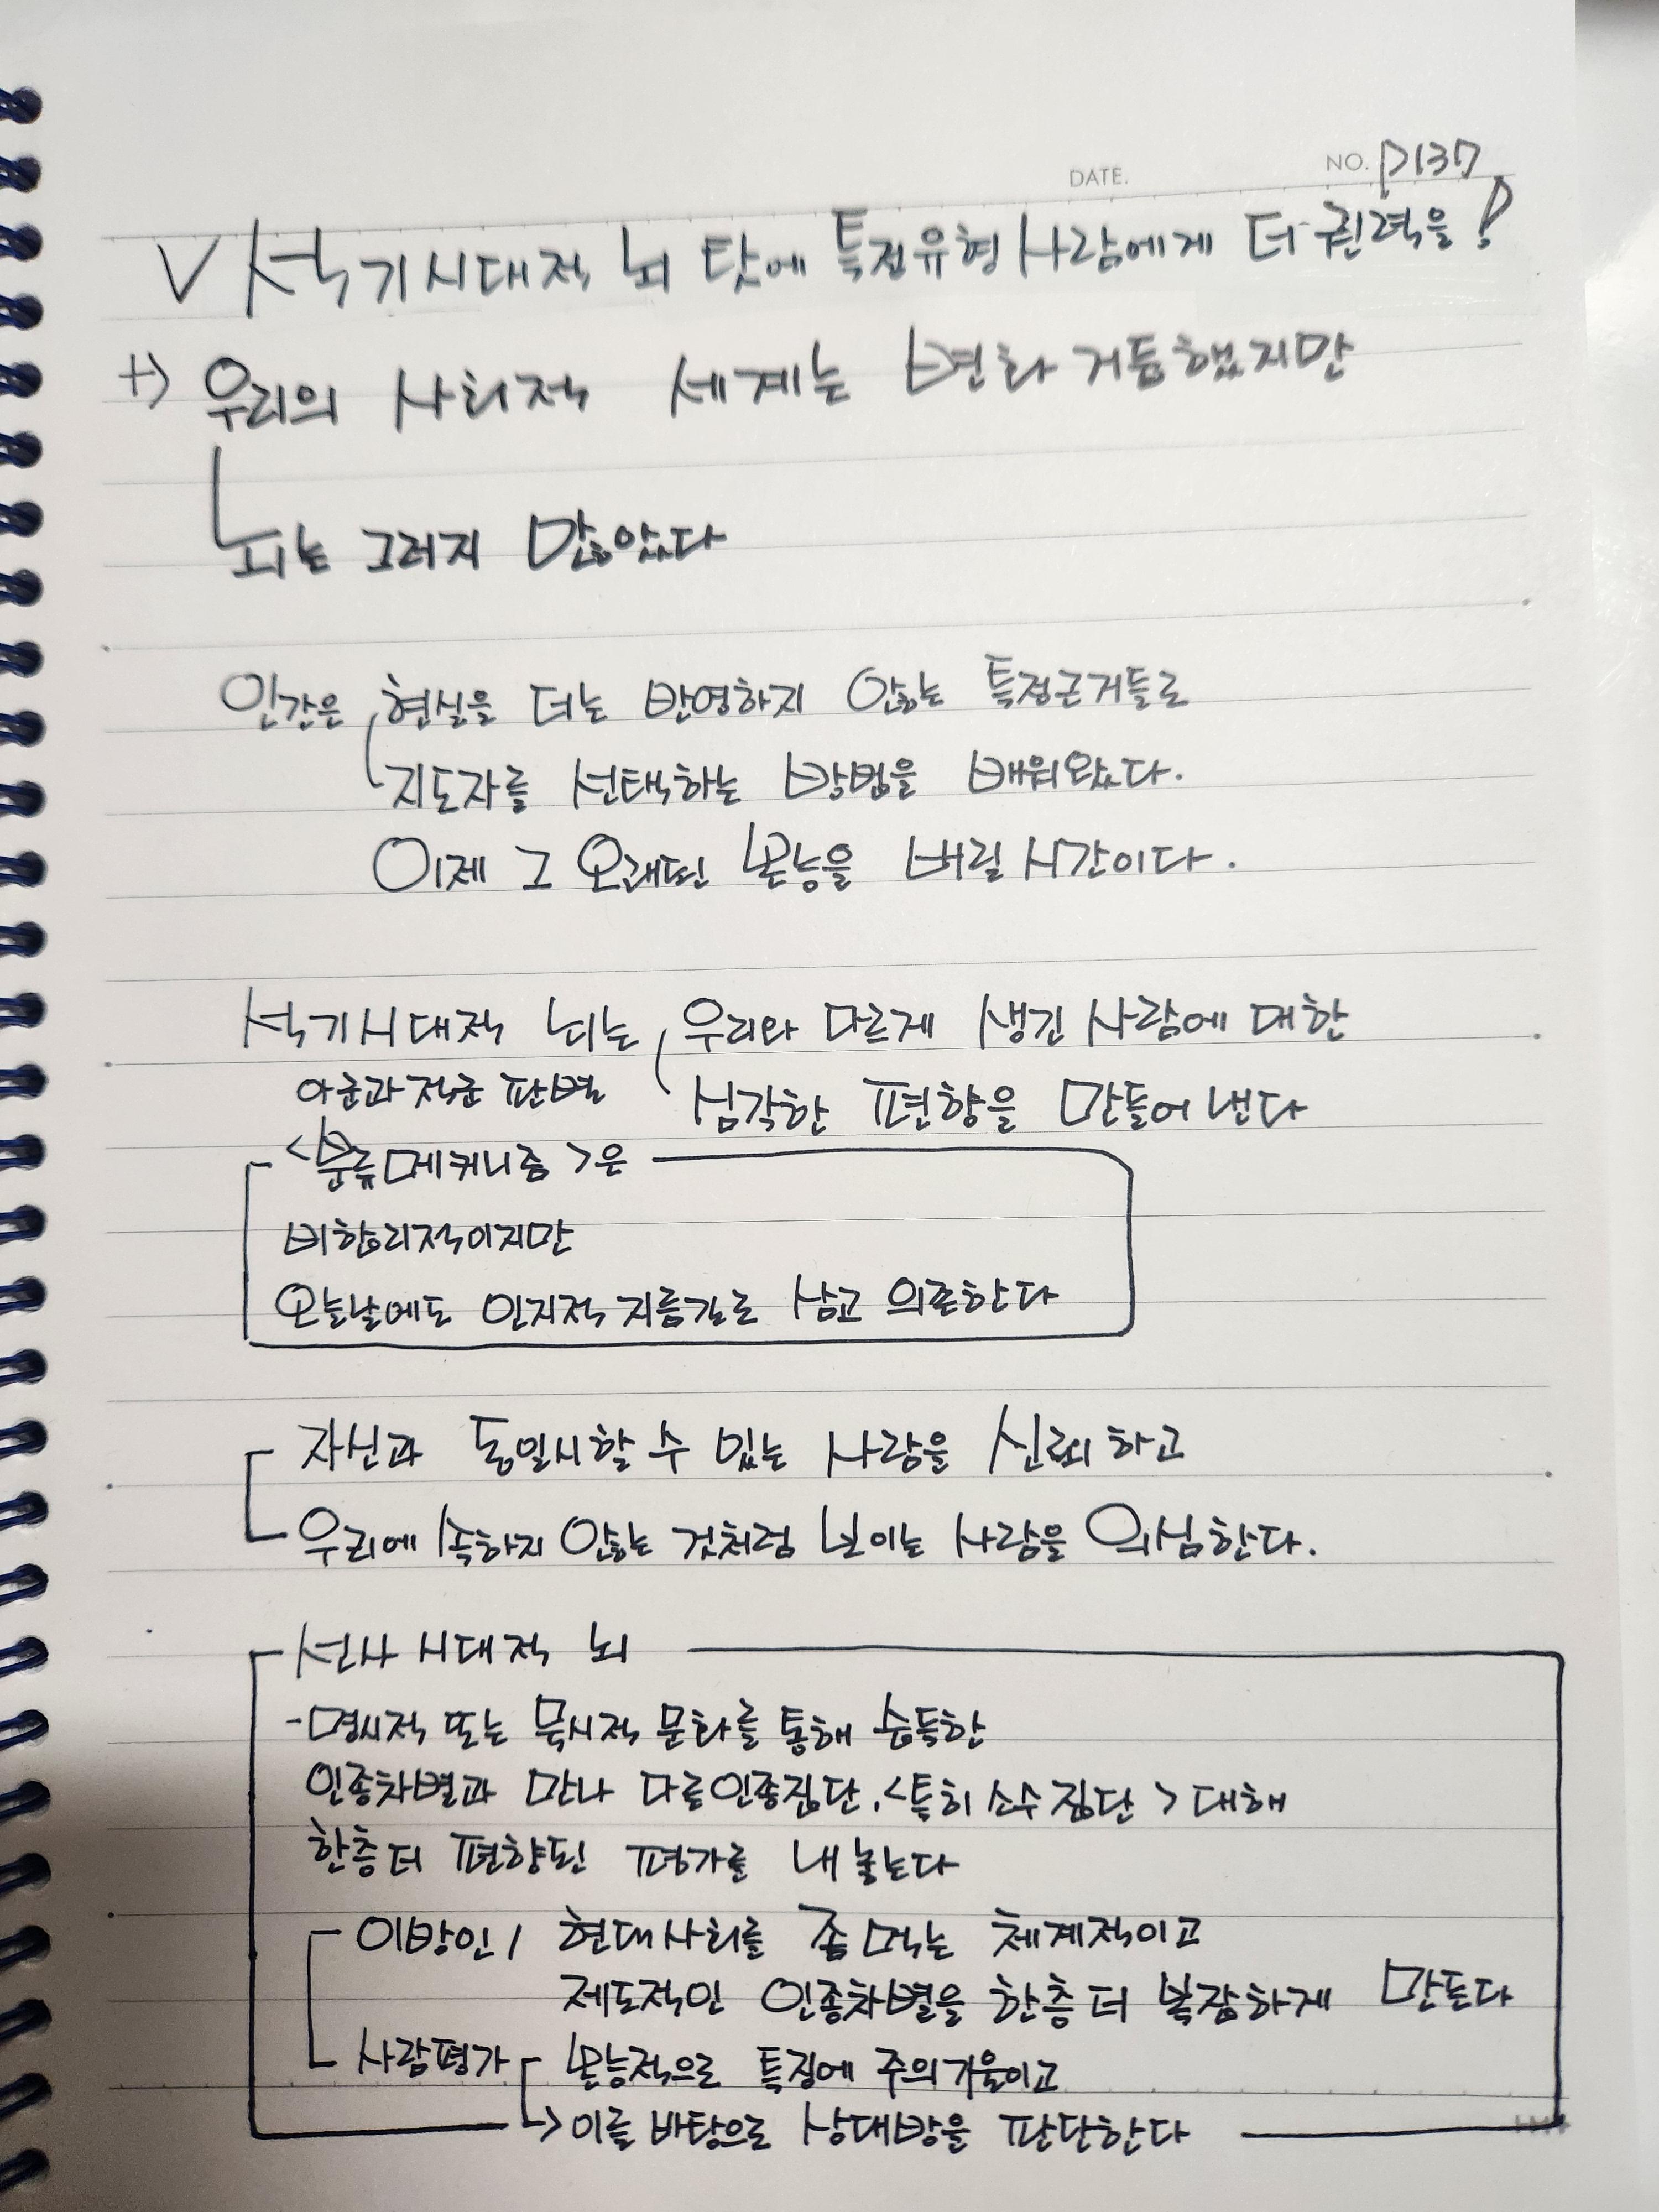 DATE.
NO. P137
V 석기시대적 뇌 탓에 특정유형 사람에게 더 권력을!
+> 우리의 사회적 세계는 변화 거듭했지만
뇌는 그러지 않았다
인간은, 현실을 더는 반영하지 않는 특정근거들로
지도자를 선택하는 방법을 배워왔다.
이제 그 오래된 본능을 버릴 시간이다.
석기시대적 뇌는, 우리와 다르게 생긴 사람에 대한
아군과 적군 판별 심각한 편향을 만들어 낸다
<분류메커니즘>은
비합리적이지만
오늘날에도 인지적 지름길로 삼고 의존한다
자신과 동일시할 수 있는 사람을 신뢰하고
우리에 속하지 않는 것처럼 보이는 사람을 의심한다.
선사 시대적 뇌
-명시적 또는 묵시적 문화를 통해 습득한
인종차별과 만나 다른인종집단,<특히 소수집단> 대해
한층 더 편향된 평가를 내놓는다
이방인/ 현대사회를 좀먹는 체계적이고
제도적인 인종차별을 한층 더 복잡하게 만든다
사람평가 본능적으로 특징에 주의기울이고
-> 이를 바탕으로 상대방을 판단한다